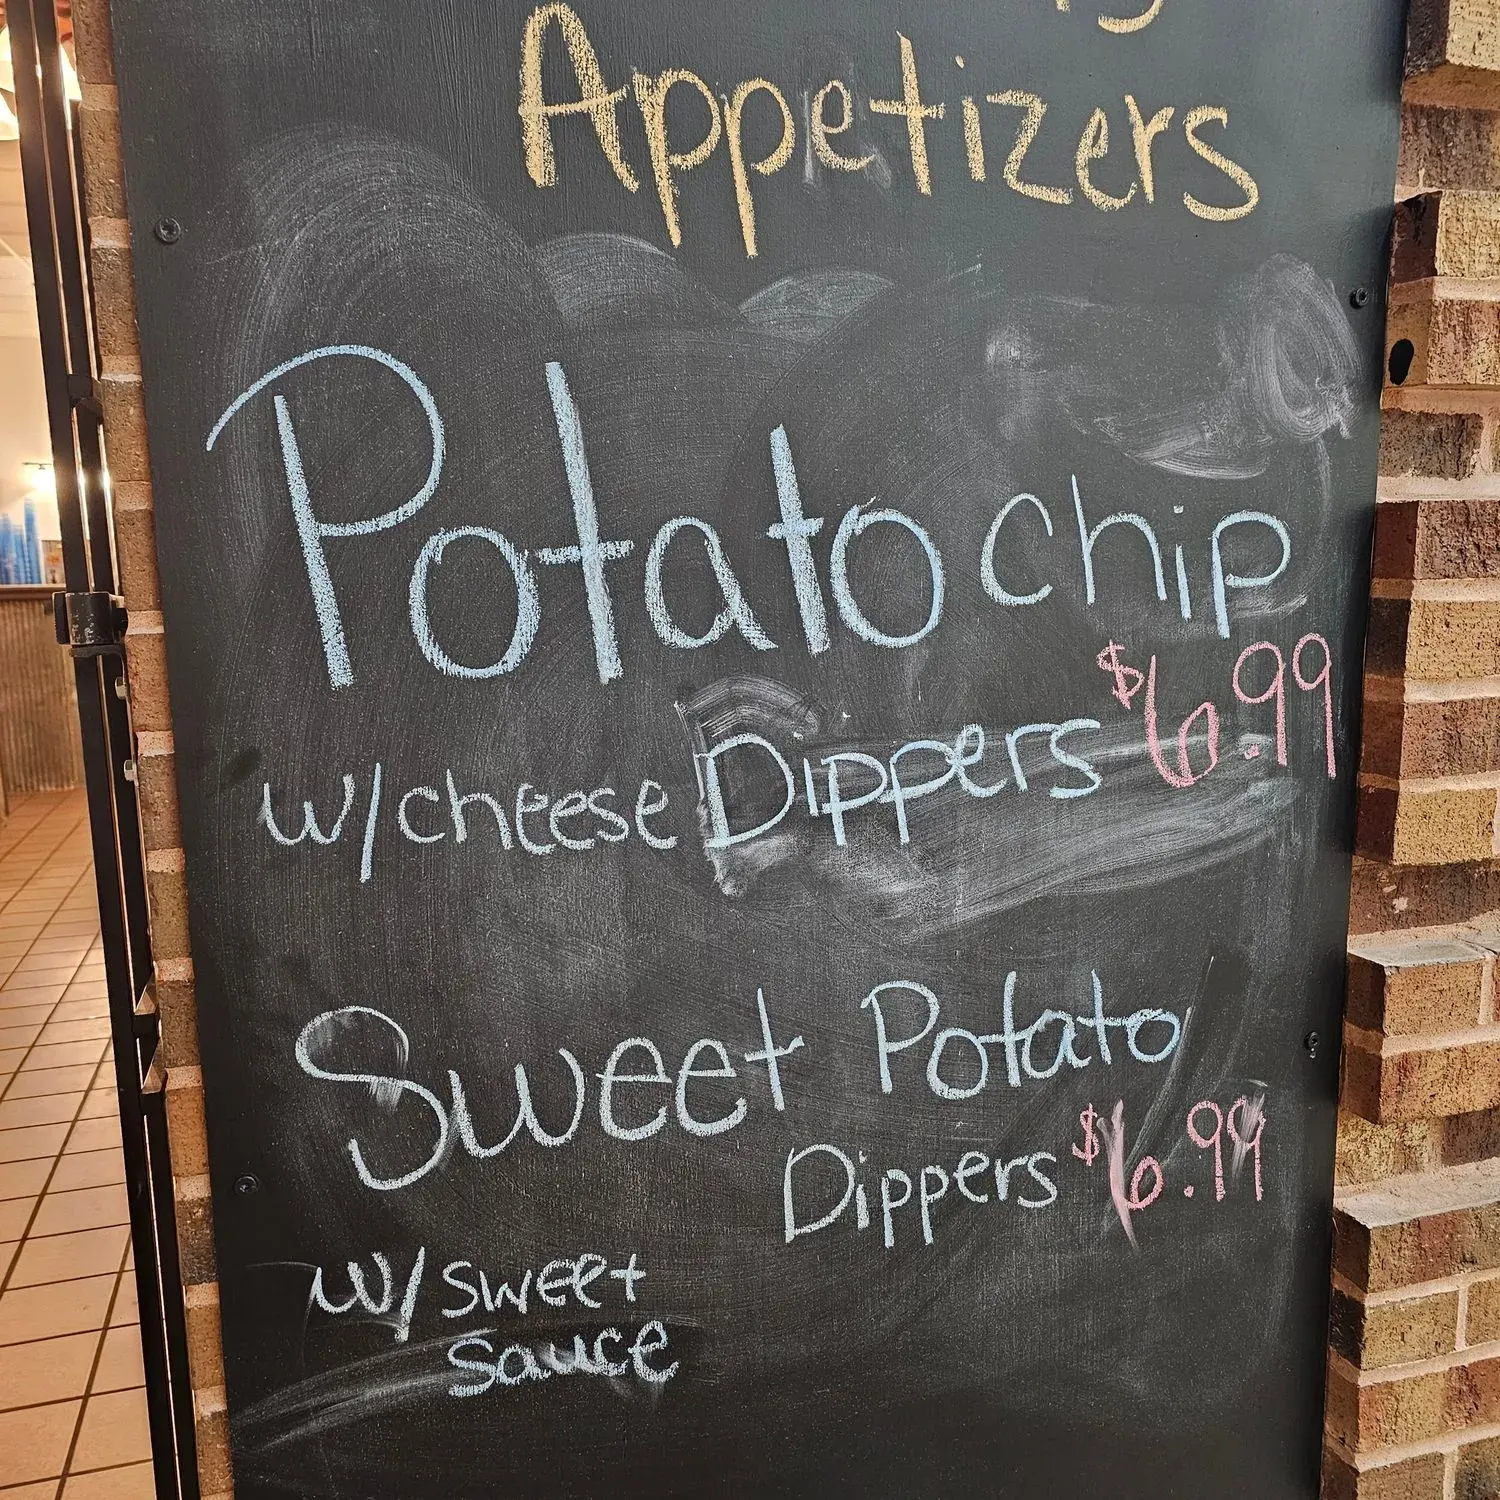 Appetizers
Potato chip
w/cheese Dippers $6.99
Sweet Potato
Dippers $6.99
w/sweet
sauce